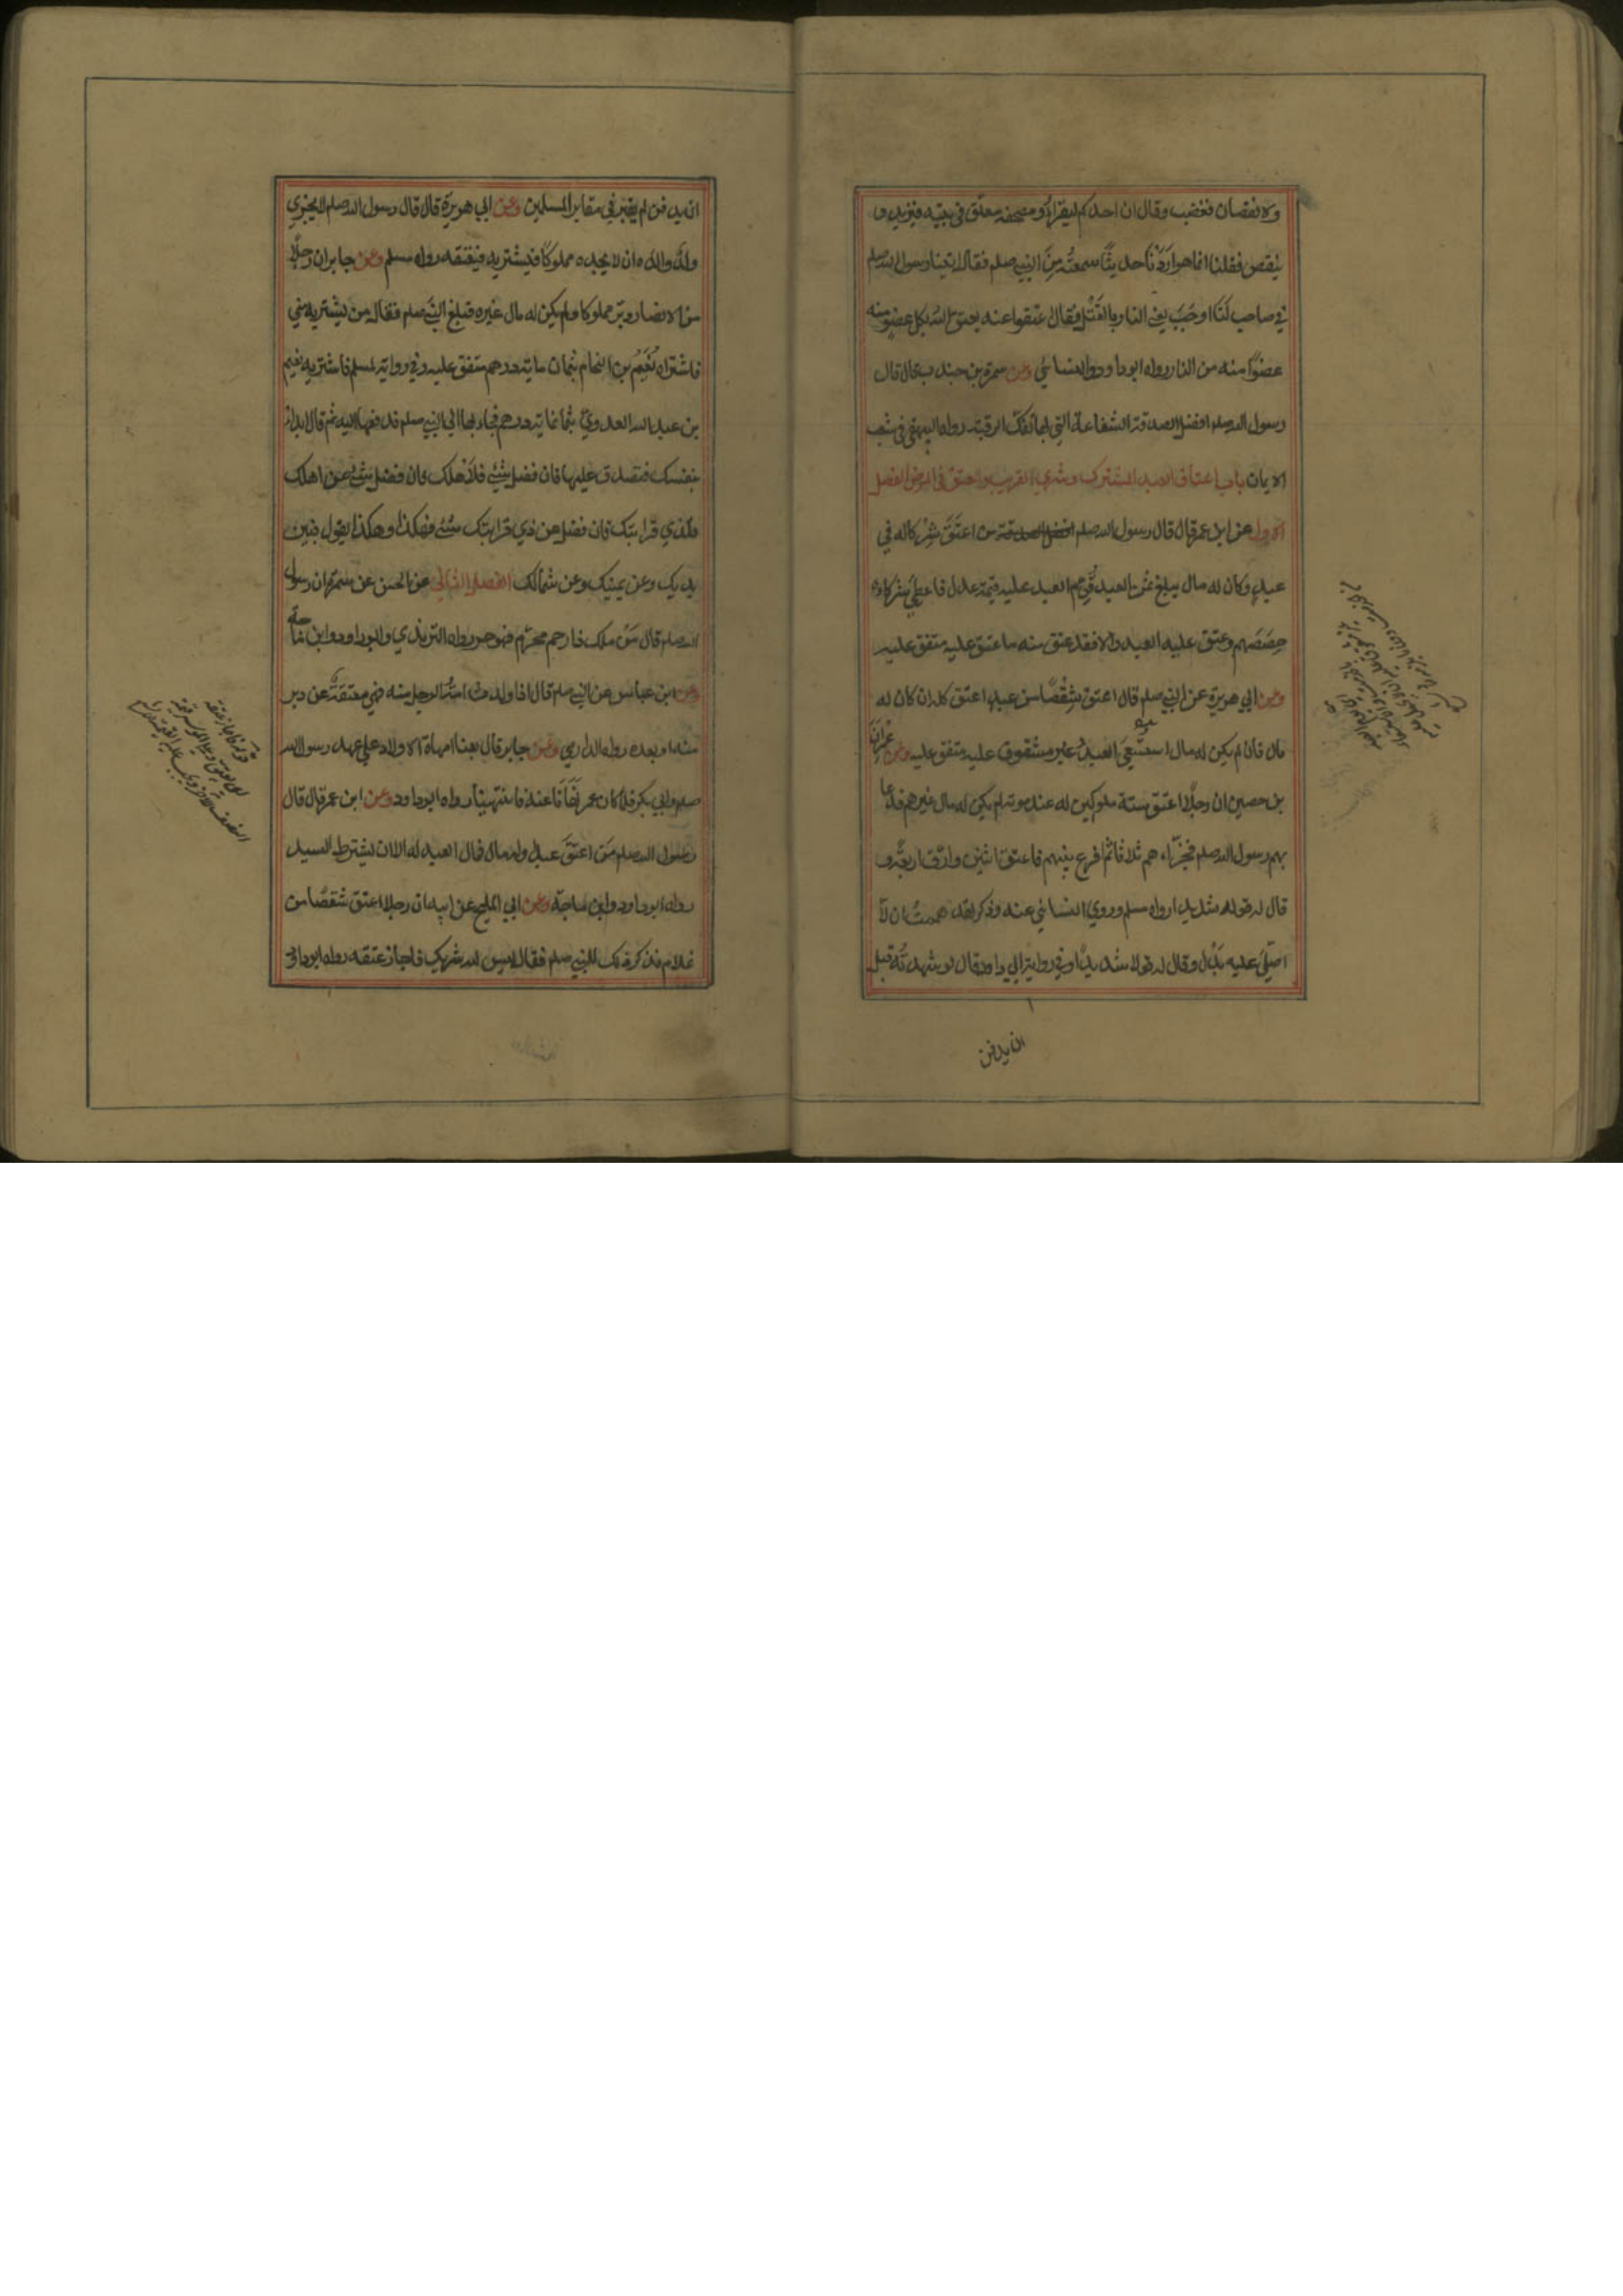 ولا نقصان فغضب وقال ان احدكم ليقرأ ومصحفه معلق في بيته فيزيد و
ينقص فقلنا انما اردنا حديثا سمعته من النبي صلم فقال اتينا رسول الله صلم
في صاحب لنا اوجب يعني النار بالقتل فقال اعتقوا عنه يعتق الله بكل عضو منه
عضوا منه من النار رواه ابوداود والنسائي وعن سمرة بن جندب قال قال
رسول الله صلم افضل الصدقة الشفاعة التي بها تفك الرقبة رواه البيهقي في شعب
الايمان باب اعتاق العبد المشترك وشري القريب والعتق في المرض الفصل
الاول عن ابن عمر قال قال رسول الله صلم من اعتق شركا له في
عبد وكان له مال يبلغ ثمن العبد قوم العبد عليه قيمة عدل فاعطي شركاءه
حصصهم وعتق عليه العبد والا فقد عتق منه ما عتق عليه متفق عليه
وعن ابي هريرة عن النبي صلم قال اعتق شقصا من عبد اعتق كله ان كان له
مال فان لم يكن له مال استسعي العبد غير مشقوق عليه متفق عليه وعن عمران
بن حصين ان رجلا اعتق ستة مملوكين له عند موته لم يكن له مال غيرهم فدعا
بهم رسول الله صلم فجزاءهم ثلاثا ثم اقرع بينهم فاعتق اثنين وارق اربعة و
قال له قولا شديدا رواه مسلم وروي النسائي عنه وذكر لقد هممت ان لا
اصلي عليه بدل وقال له قولا شديدا وفي رواية ابي داود قال لو شهدته قبل
ان يدفن
ان يدفن لم يقبر في مقابر المسلمين وعن ابي هريرة قال قال رسول الله صلم لا يجزي
ولد والده الا ان يجده مملوكا فيشتريه فيعتقه رواه مسلم وعن جابر ان رجلا
من الانصار دبر مملوكا ولم يكن له مال غيره فبلغ النبي صلم فقال من يشتريه مني
فاشتراه نعيم بن النحام بثمان مائة درهم متفق عليه وفي رواية لمسلم فاشتريه نعيم
بن عبد الله العدوي بثمانمائة درهم فجاء بها الي النبي صلم فدفعها اليه ثم قال ابدأ
بنفسك فتصدق عليها فان فضل شيء فلاهلك فان فضل شيء عن اهلك
فلذي قرابتك فان فضل من ذي قرابتك شيء فهكذا وهكذا يقول فبين
يديك وعن يمينك وعن شمالك الفصل الثاني عن الحسن عن سمرة ان رسول
الله صلم قال من ملك ذا رحم محرم فهو حر رواه الترمذي وابوداود وابن ماجة
وعن ابن عباس عن النبي صلم قال اذا ولدت امة الرجل منه فهي معتقة عن دبر
منه او بعده رواه الدارمي وعن جابر قال بعنا امهات الاولاد علي عهد رسول الله
صلم وابي بكر فلما كان عمر نهانا عنه فانتهينا رواه ابوداود وعن ابن عمر قال قال
رسول الله صلم من اعتق عبدا وله مال فمال العبد له الا ان يشترط السيد
رواه ابوداود وابن ماجة وعن ابي المليح عن ابيه ان رجلا اعتق شقصا من
غلام فذكر ذلك للنبي صلم فقال ليس لله شريك فاجاز عتقه رواه ابوداود
قوله فاجاز عتقه